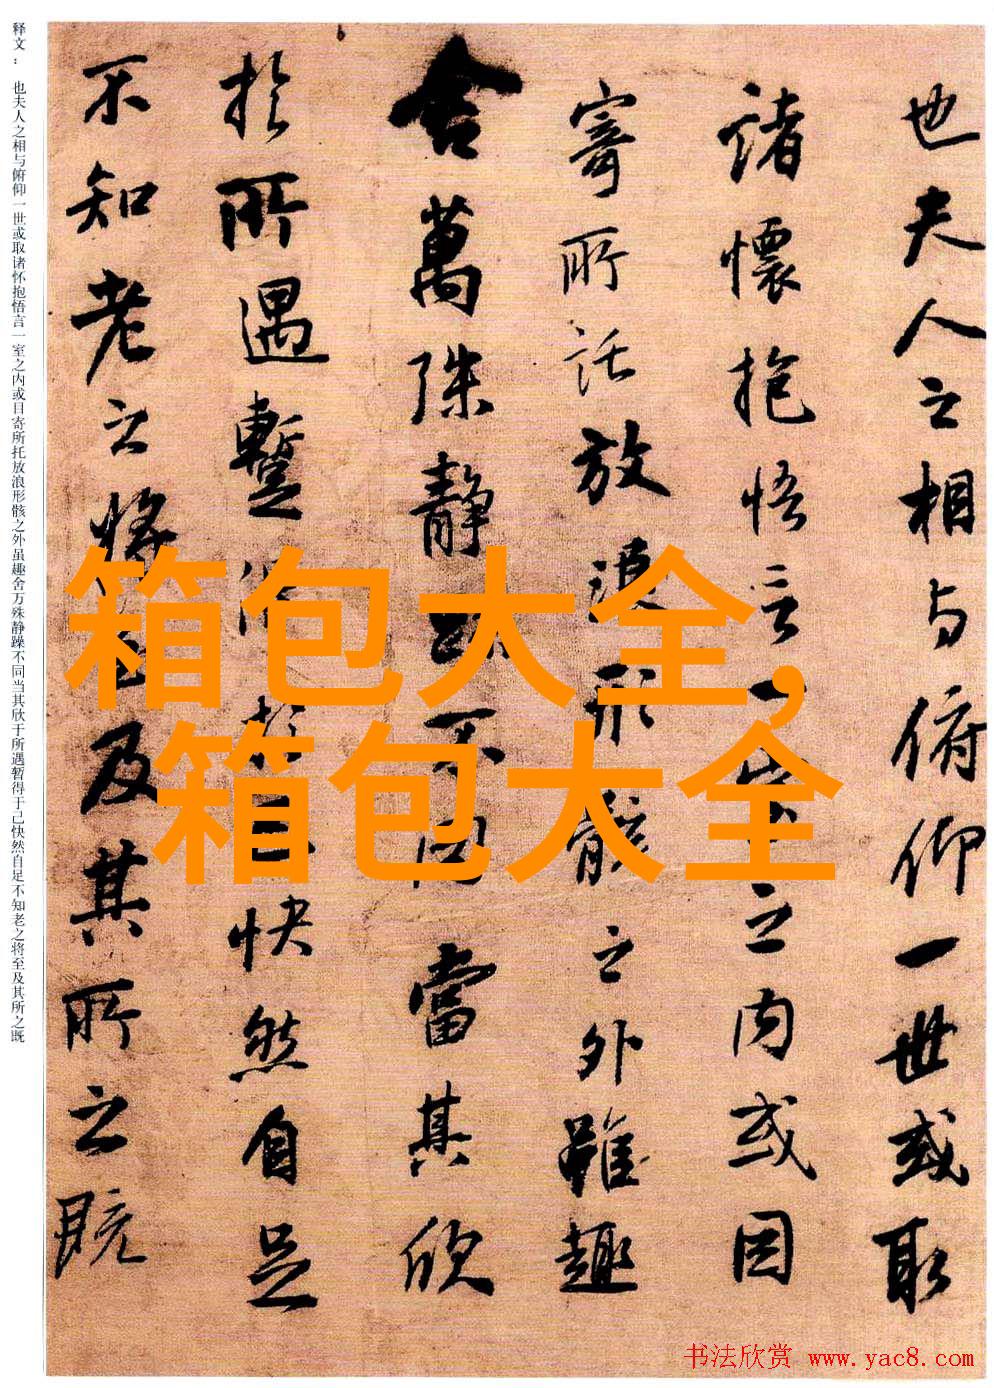 释文： 也夫人之相与俯仰一世或取诸怀抱悟言一室之内或目寄所托放浪形骸之外虽趣舍万殊静躁不同当其欣于所遇暂得于己快然自足不知老之将至及其所之既
也夫人之相与俯仰一世或取
諸懷抱悟言一室之内或因
寄所託放浪形骸之外雖趣
舍萬殊静躁不同當其欣
於所遇蹔得於己快然自足
不知老之将至及其所之既
箱包大全,
箱包大全
书法欣赏 www.yac8.com